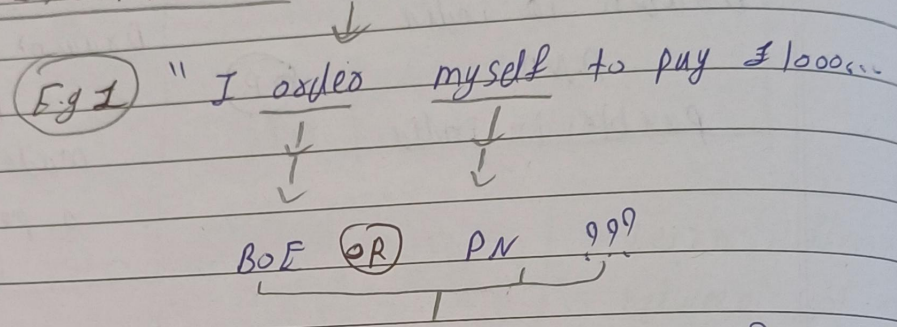 Eg 1 " I order myself to pay £ 1000....
BOE OR PN ???